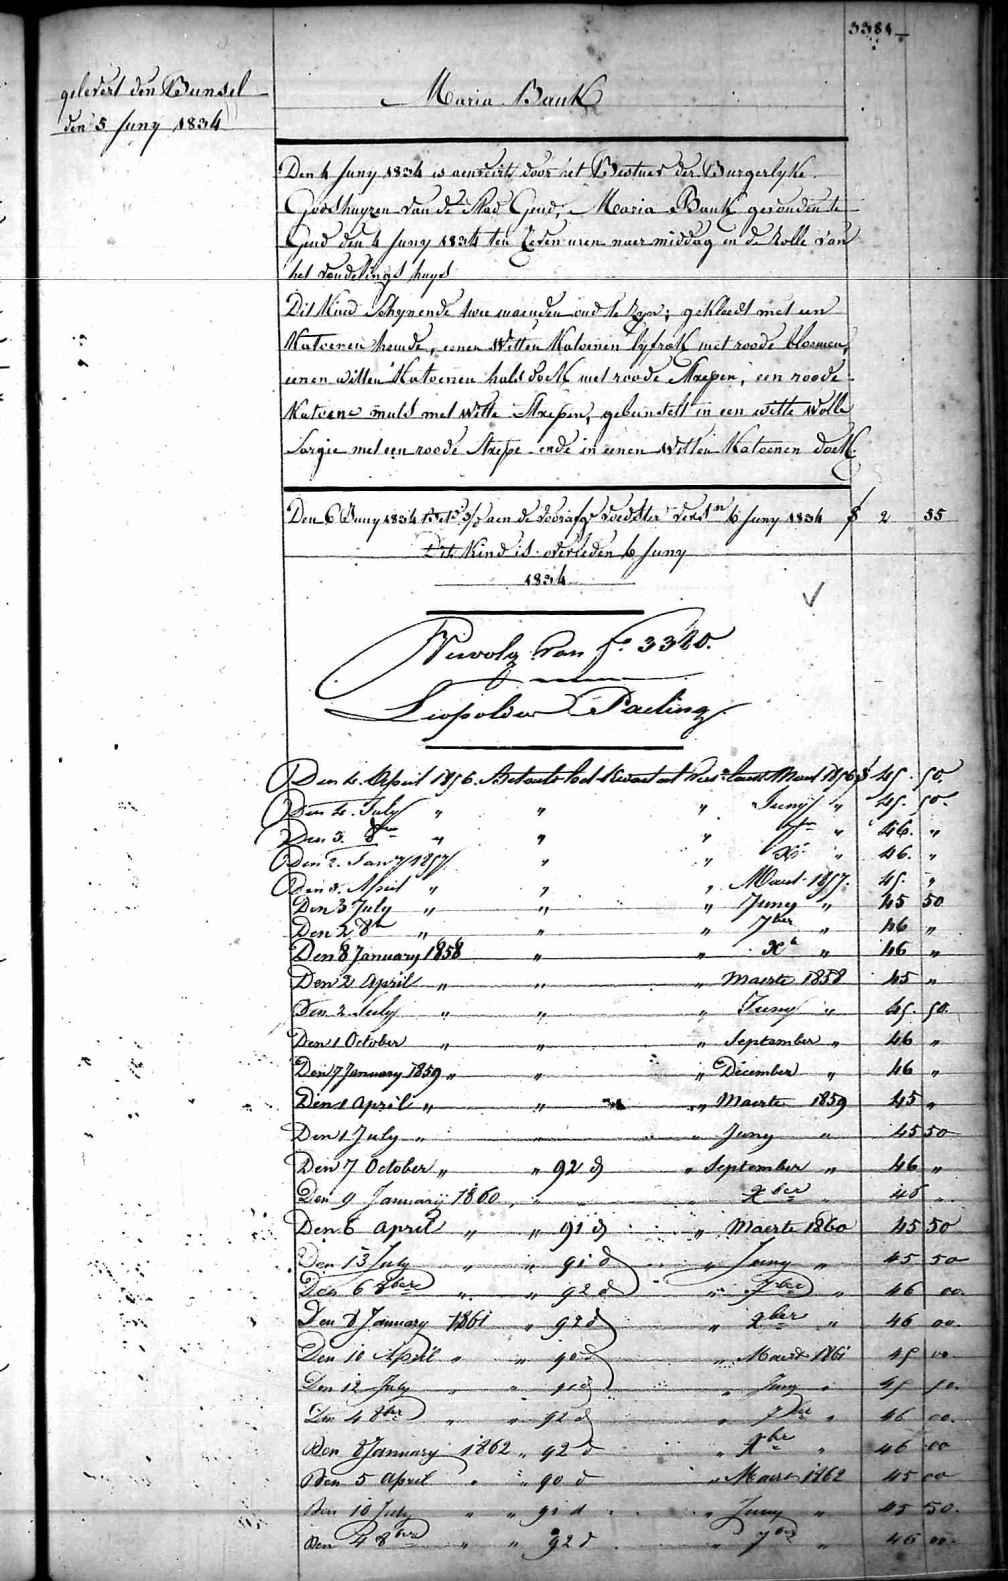 3384
gelevert den Bunsel
den 5 Juny 1834
Maria Bauk
Den 4 Juny 1834 is aenveirt door het Bestuer der Burgerlyke
Godshuyzen van de Stad Gend, Maria Bauk gevonden te
Gend den 4 Juny 1834 ten zeven uren naer middag in de Rolle van
het vondelings huys
Dit Kind schynende twee maenden oud te zyn; gekleedt met een
Katoenen hemde, eenen witten Katoenen lyfrok met roode bloemen,
eenen witten Katoenen halsdoek met roode strepen, een roode
Katoene muts met witte strepen, gebunselt in een witte wolle
Sargie met een roode strepe ende in eenen witten Katoenen doek.
Den 6 Juny 1834 aen de voedster 6 Juny 1834 f 2 35
Dit Kind is overleden 6 Juny
1834
Vervolg van fo. 3320.
Leopoldus Paeling
Den 4. April 1856. Betaelt het Kwartael Maert 1856 f 45. 50.
Den 4. July " " " Juny " 45. 50.
Den 3. 8bre " " " 7bre " 46. "
Den 2. Jany 1857 " " Xbr " 46. "
Den 3. April " " " Maert 1857. 45. "
Den 3 July " " " Juny " 45 50
Den 2 8br " " " 7ber " 46 "
Den 8 January 1858 " " Xb " 46 "
Den 2 April " " " Maerte 1858 45 "
Den 2 July " " " Juny " 45. 50.
Den 1 October " " " September " 46 "
Den 7 January 1859 " " " December " 46 "
Den 1 April " " " Maerte 1859 45 "
Den 1 July " " " Juny " 45 50
Den 7 October " " 92 d " September " 46 "
Den 9 January 1860 " " " Xber " 46 "
Den 6 April " " 91 d " Maerte 1860 45 50
Den 13 July " " 91 d " Juny " 45 50
Den 6 8bre " " 92 d " 7bre " 46 00
Den 8 January 1861 " 92 d " Xber " 46 00
Den 10 April " " 90 d " Maert 1861 45 00
Den 12 July " " 91 d " Juny " 45 50
Den 4 8bre " " 92 d " 7bre " 46 00
Den 8 January 1862 " 92 d " Xbre " 46 00
Den 5 April " " 90 d " Maert 1862 45 00
Den 10 July " " 91 d " Juny " 45 50
Den 4 8bre " " 92 d " 7bre " 46 00